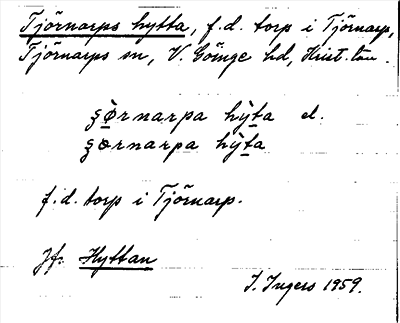 Tjörnarps hytta, f.d. torp i Tjörnarp,
Tjörnarps sn, V. Göinge hd, Krist. län.
ʂø̀rnarpa hỳta el.
ʂɵrnarpa hỳta
f.d. torp i Tjörnarp.
Jfr Hyttan
I. Ingers 1959.